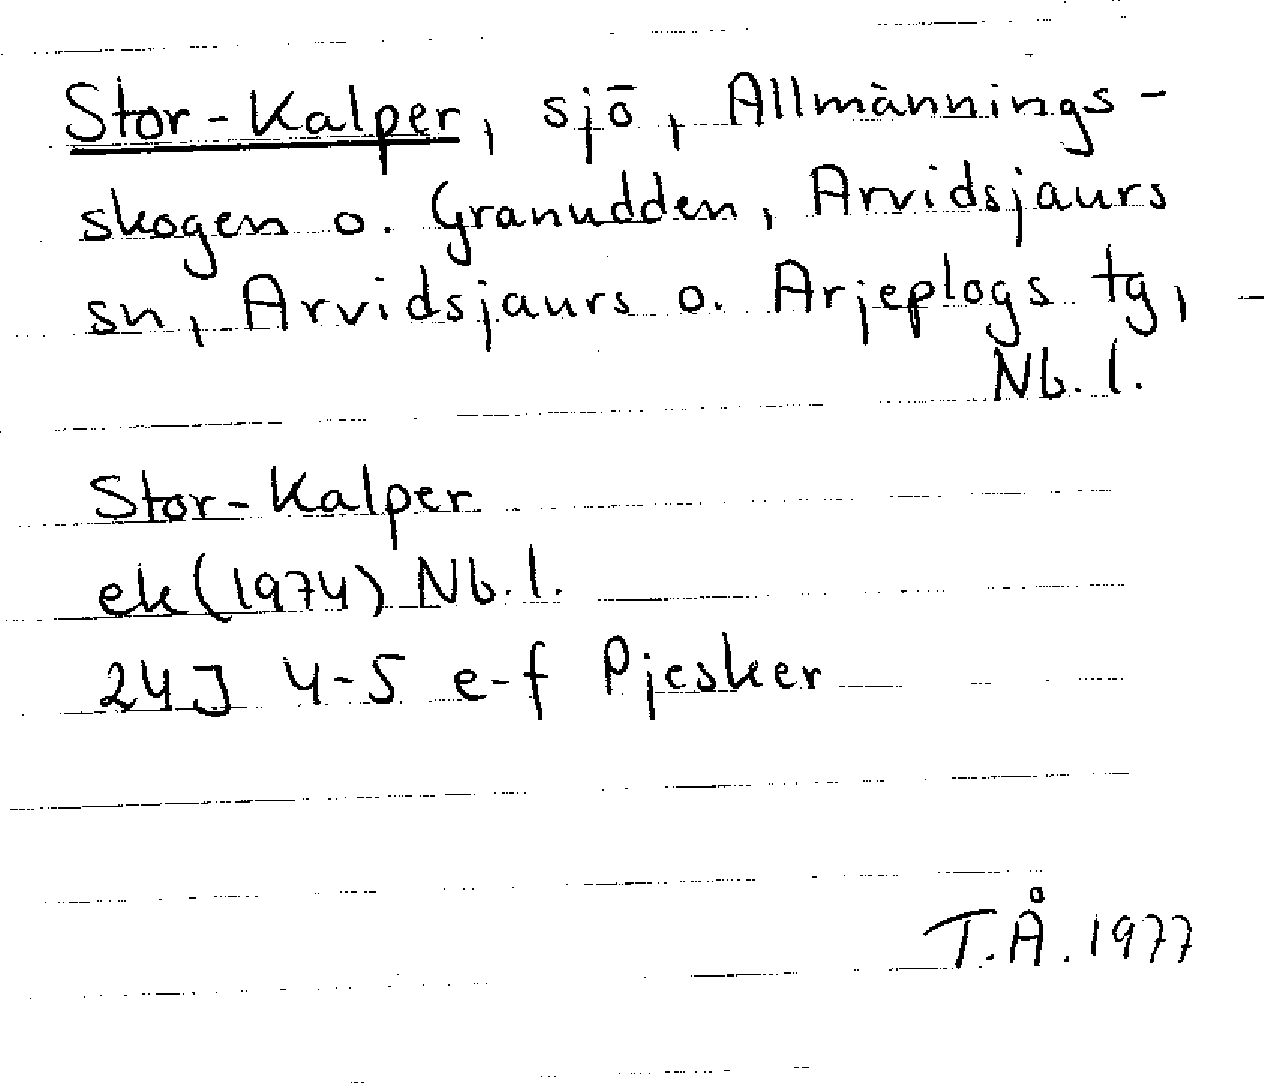 Stor-Kalper, sjö, Allmännings-
skogen o. Granudden, Arvidsjaurs
sn, Arvidsjaurs o. Arjeplogs tg,
Nb. l.
Stor-Kalper
ek (1974) Nb. l.
24J 4-5 e-f Pjesker
T.Å. 1977